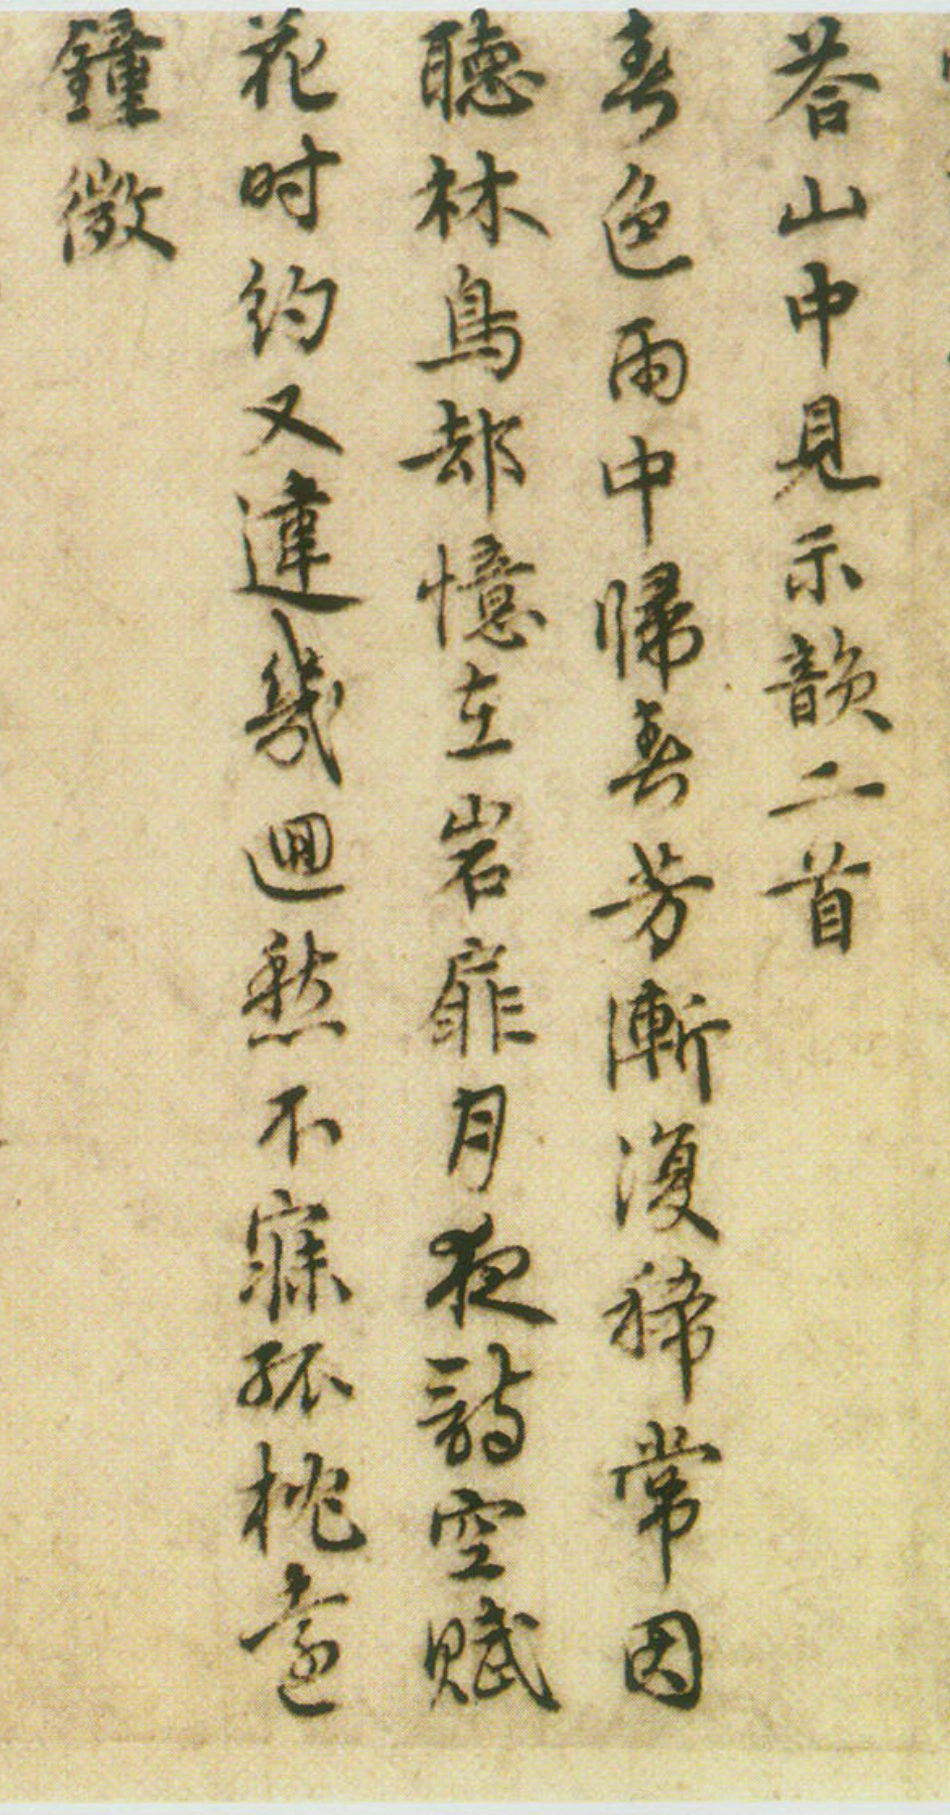 荅山中見示韻二首
春色雨中歸春芳漸復稀常因
聽林鳥却憶在岩扉月夜詩空賦
花时約又違幾迴愁不寐孤枕遠
鐘微